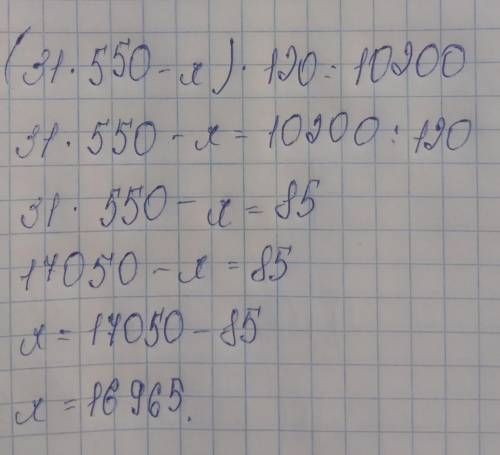 (31 · 550 - x) · 120 = 10200
31 · 550 - x = 10200 : 120
31 · 550 - x = 85
17050 - x = 85
x = 17050 - 85
x = 16965.